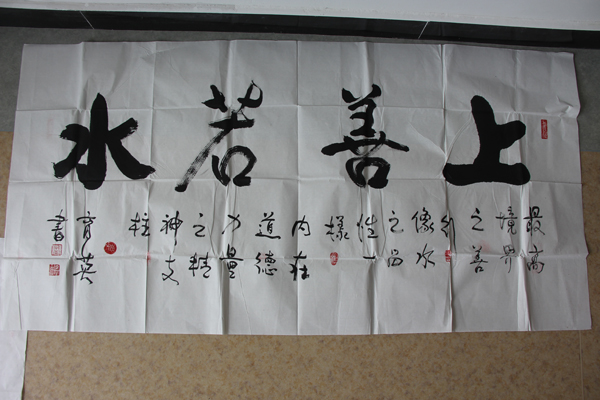 上善若水
最高
境界
之善
像水
之品
性一
樣
内在
道德
力量
之精
神支
柱
育英
書